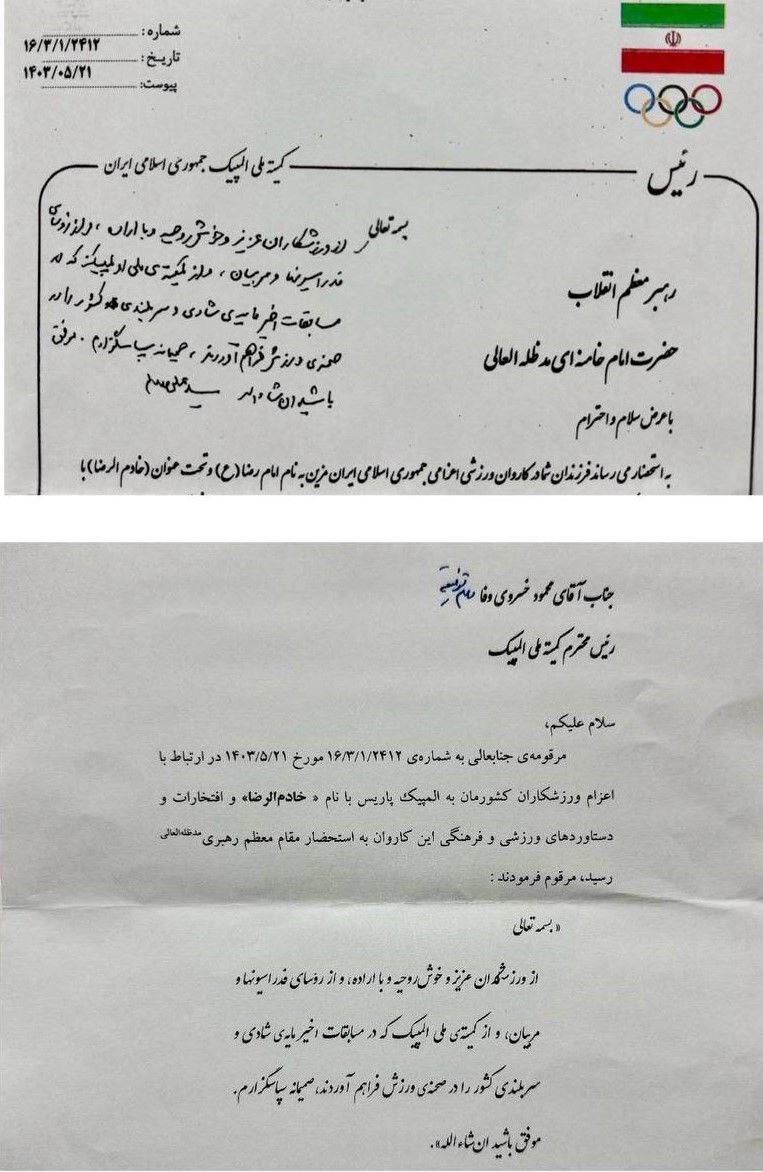 شماره:
۱۶/۳/۱/۲۴۱۲
تاریخ:
۱۴۰۳/۰۵/۲۱
پیوست:
رئیس
کمیته ملی المپیک جمهوری اسلامی ایران
بسمه تعالی
از ورزشکاران عزیز و خوش‌روحیه و با اراده، و از رؤسای
فدراسیونها و مربیان، و از کمیته‌ی ملی المپیک که در
مسابقات اخیر مایه‌ی شادی و سربلندی کشور را در
صحنه‌ی ورزش فراهم آوردند، صمیمانه سپاسگزارم. موفق
باشید ان‌شاءالله
رهبر معظم انقلاب
حضرت امام خامنه ای مدظله العالی
با عرض سلام و احترام
به استحضار می رساند فرزندان شما در کاروان ورزشی اعزامی جمهوری اسلامی ایران مزین به نام امام رضا (ع) و تحت عنوان (خادم الرضا) با
جناب آقای محمود خسروی وفا دام توفیقه
رئیس محترم کمیته ملی المپیک
سلام علیکم،
مرقومه‌ی جنابعالی به شماره‌ی ۱۶/۳/۱/۲۴۱۲ مورخ ۱۴۰۳/۵/۲۱ در ارتباط با
اعزام ورزشکاران کشورمان به المپیک پاریس با نام « خادم‌الرضا» و افتخارات و
دستاوردهای ورزشی و فرهنگی این کاروان به استحضار مقام معظم رهبری مدظله‌العالی
رسید، مرقوم فرمودند :
« بسمه تعالی
از ورزشکاران عزیز و خوش‌روحیه و با اراده، و از رؤسای فدراسیونها و
مربیان، و از کمیته‌ی ملی المپیک که در مسابقات اخیر مایه‌ی شادی و
سربلندی کشور را در صحنه‌ی ورزش فراهم آوردند، صمیمانه سپاسگزارم.
موفق باشید ان شاء الله».